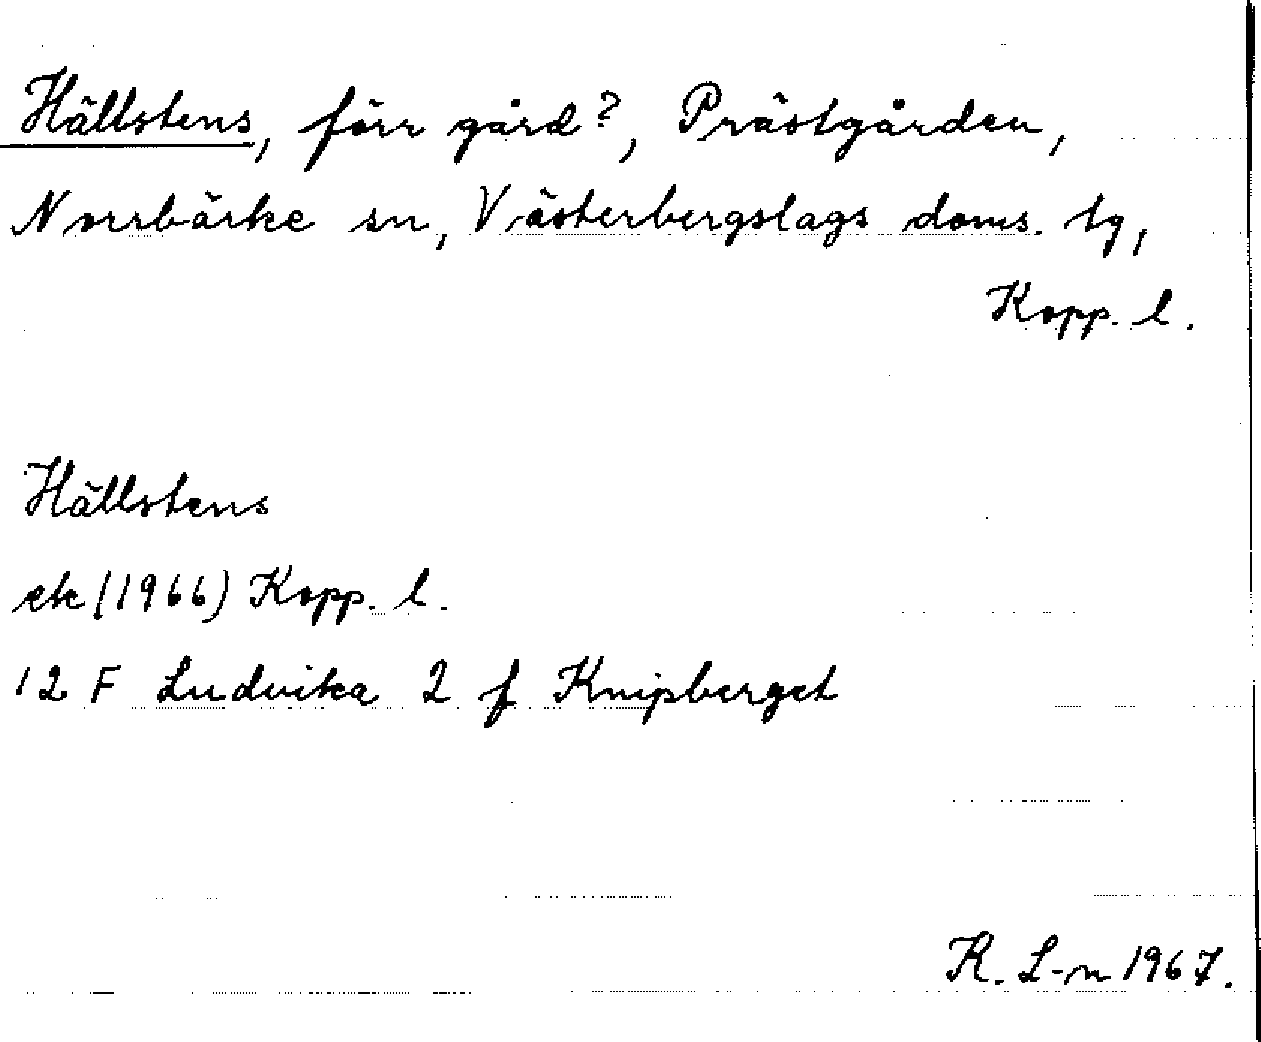 Hällstens, förr gård?, Prästgården,
Norrbärke sn, Västerbergslags doms. tg,
Kopp. l.
Hällstens
ek (1966) Kopp. l.
12 F Ludvika 2 f Knipberget
R. L-n 1967.